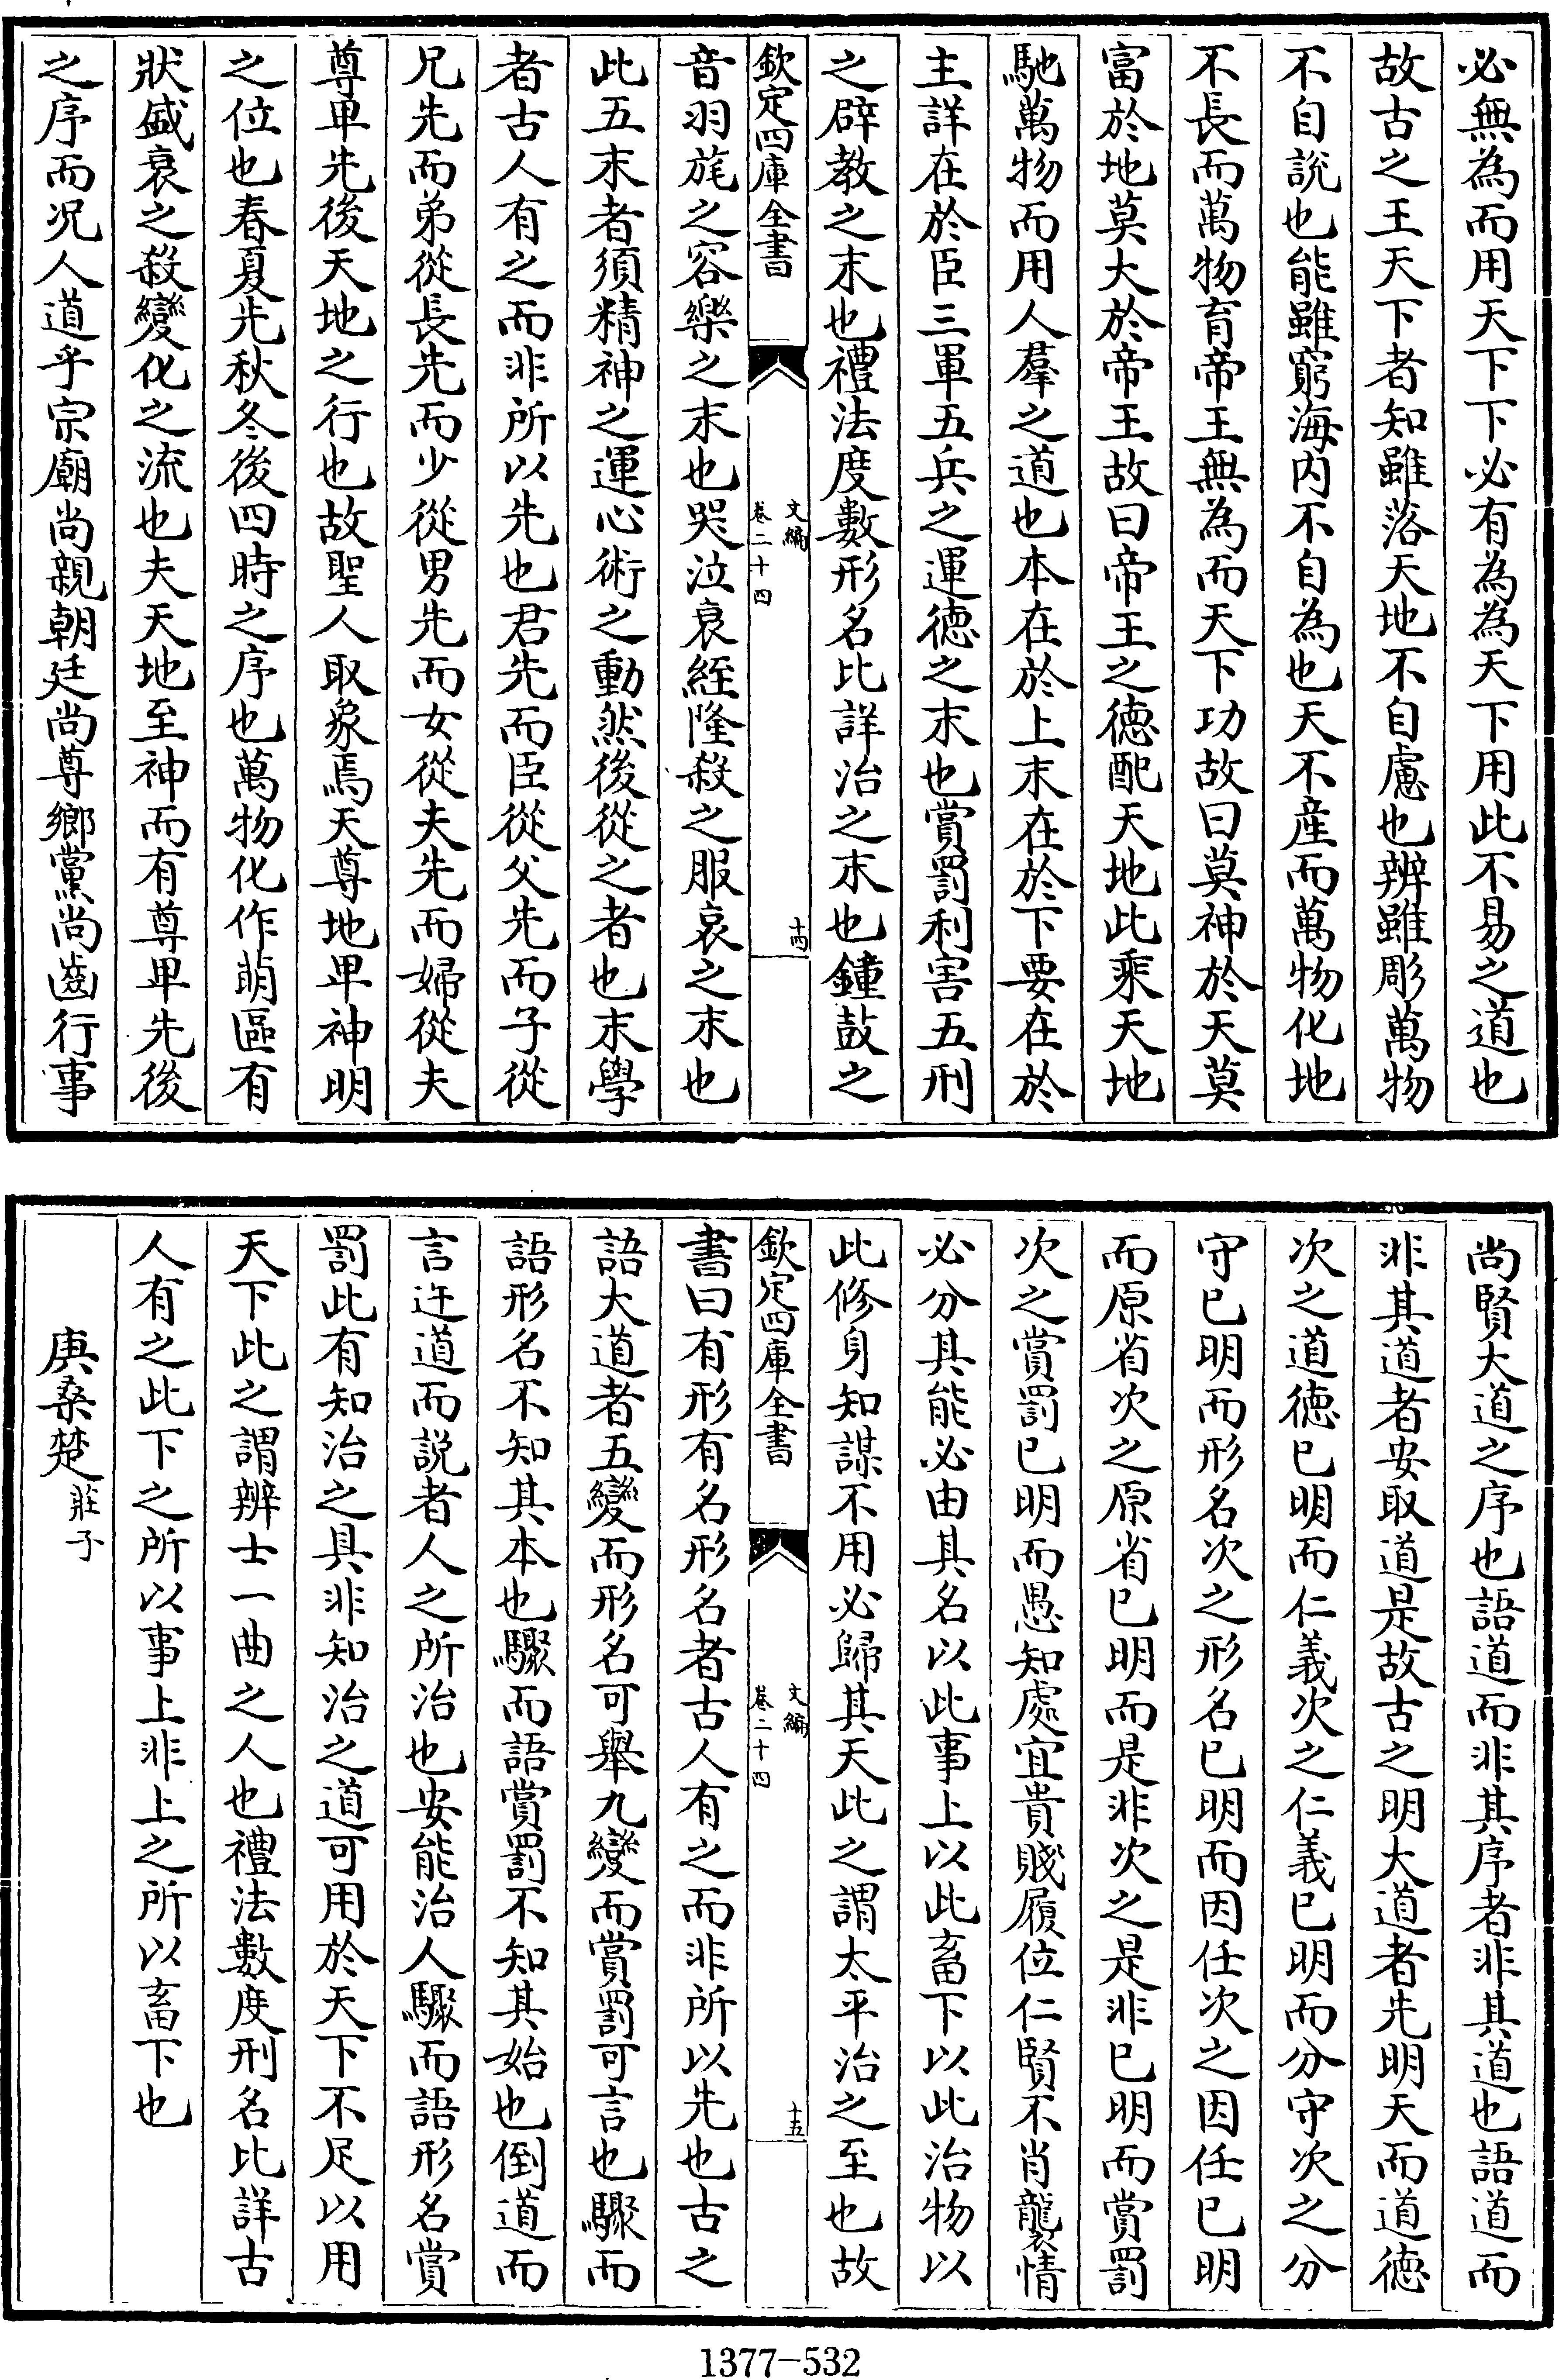 必無為而用天下下必有為為天下用此不易之道也
故古之王天下者知雖落天地不自慮也辨雖彫萬物
不自說也能雖窮海内不自為也天不産而萬物化地
不長而萬物育帝王無為而天下功故曰莫神於天莫
富於地莫大於帝王故曰帝王之德配天地此乘天地
馳萬物而用人羣之道也本在於上末在於下要在於
主詳在於臣三軍五兵之運德之末也賞罰利害五刑
之辟教之末也禮法度數形名比詳治之末也鐘鼓之
欽定四庫全書
文編
卷二十四
十四
音羽旄之容樂之末也哭泣衰絰隆殺之服哀之末也
此五末者須精神之運心術之動然後從之者也末學
者古人有之而非所以先也君先而臣從父先而子從
兄先而弟從長先而少從男先而女從夫先而婦從夫
尊卑先後天地之行也故聖人取象焉天尊地卑神明
之位也春夏先秋冬後四時之序也萬物化作萌區有
狀盛衰之殺變化之流也夫天地至神而有尊卑先後
之序而况人道乎宗廟尚親朝廷尚尊鄉黨尚齒行事
尚賢大道之序也語道而非其序者非其道也語道而
非其道者安取道是故古之明大道者先明天而道德
次之道德已明而仁義次之仁義已明而分守次之分
守已明而形名次之形名已明而因任次之因任已明
而原省次之原省已明而是非次之是非已明而賞罰
次之賞罰已明而愚知處宜貴賤履位仁賢不肖襲情
必分其能必由其名以此事上以此畜下以此治物以
此修身知謀不用必歸其天此之謂太平治之至也故
欽定四庫全書
文編
卷二十四
十五
書曰有形有名形名者古人有之而非所以先也古之
語大道者五變而形名可舉九變而賞罰可言也驟而
語形名不知其本也驟而語賞罰不知其始也倒道而
言迕道而説者人之所治也安能治人驟而語形名賞
罰此有知治之具非知治之道可用於天下不足以用
天下此之謂辨士一曲之人也禮法數度刑名比詳古
人有之此下之所以事上非上之所以畜下也
庚桑楚莊子
1377-532